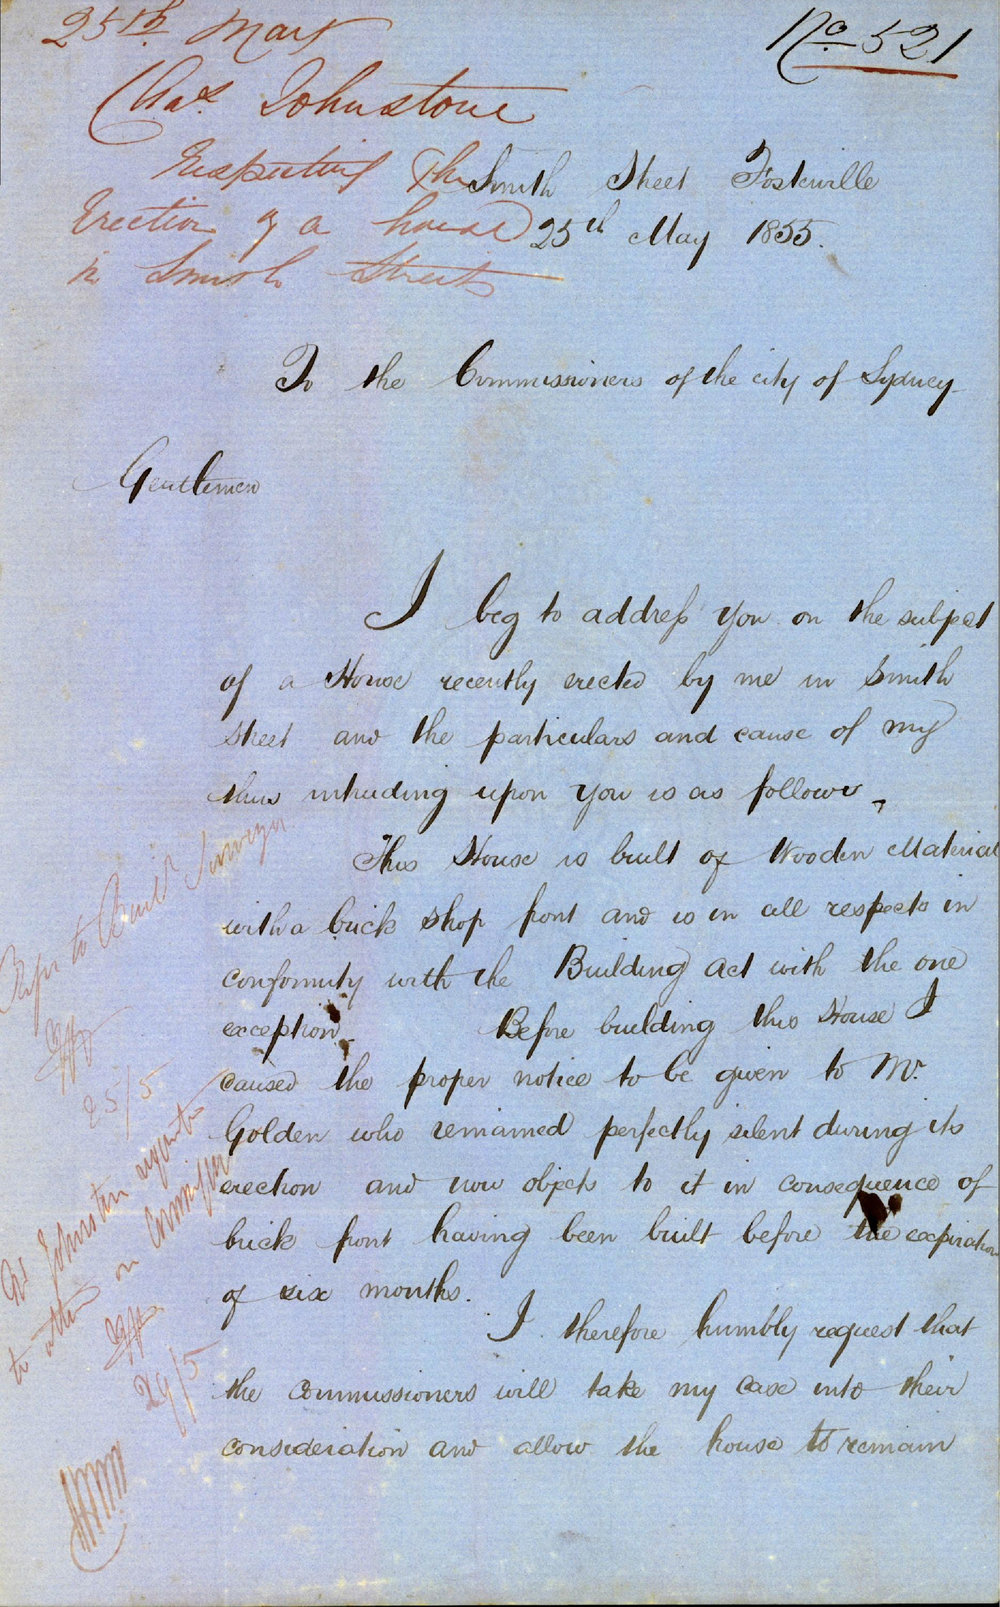 25th May
No 521
Chas Johnstone
Respecting The
Erection of a house
in Smith Street
Smith Street Fosterville
25th May 1855.
To the Commissioners of the city of Sydney
Gentlemen
I beg to address You on the subject
of a House recently erected by me in Smith
street and the particulars and cause of my
thus intruding upon You is as follows
This House is built of Wooden Material
with a brick shop front and is in all respects in
conformity with the Building Act with the one
exception. Before building this House I
caused the proper notice to be given to Mr.
Golden who remained perfectly silent during its
erection and now objects to it in consequence of
brick front having been built before the expiration
of six months.
I therefore humbly request that
the commissioners will take my case into their
consideration and allow the house to remain
Refer to Build Surveyor
25/5
Mr Johnston requested
to attend on Commissioners
29/5